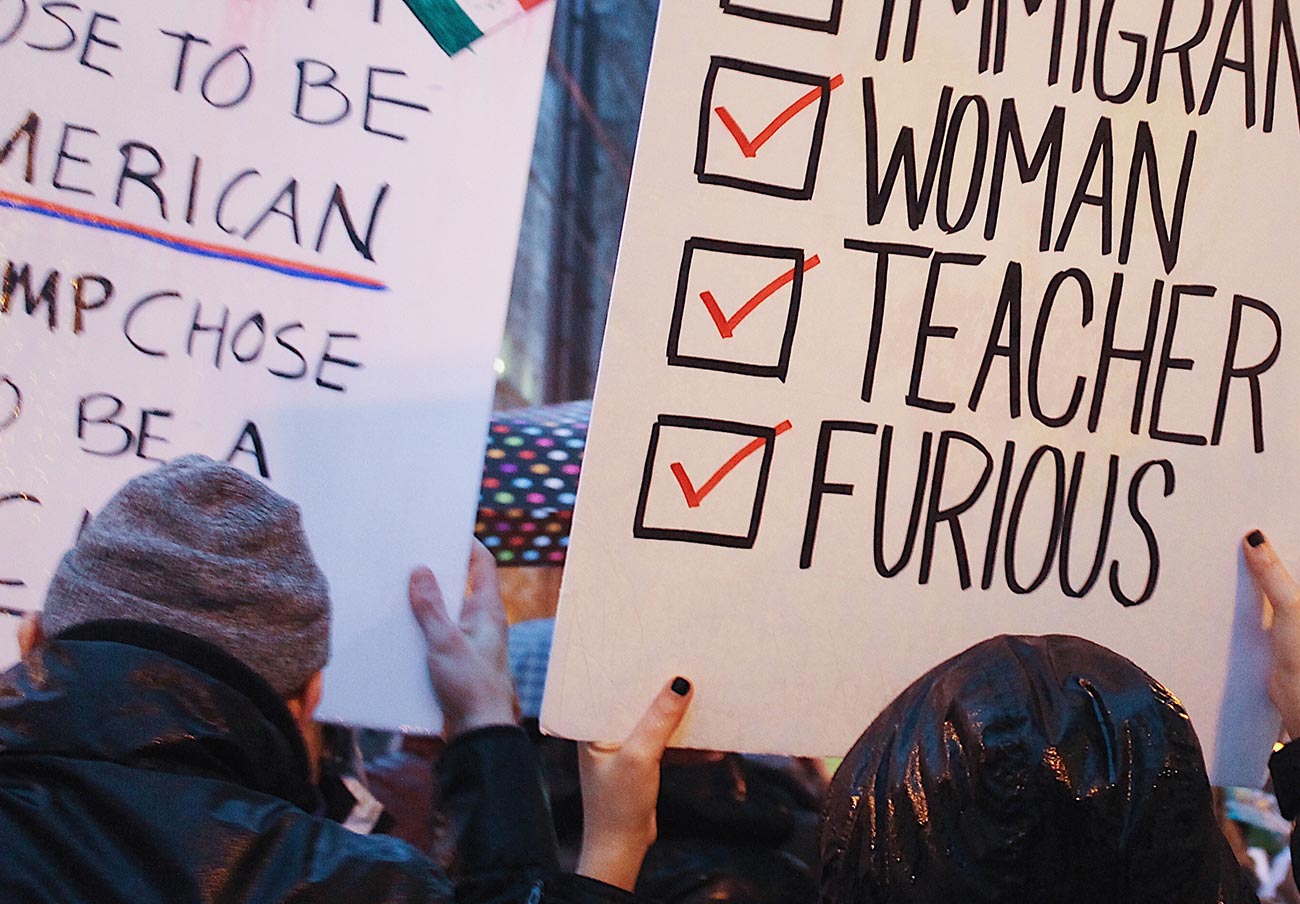 OSE TO BE
MERICAN
MP CHOSE
O BE A
IMMIGRAN
WOMAN
TEACHER
FURIOUS